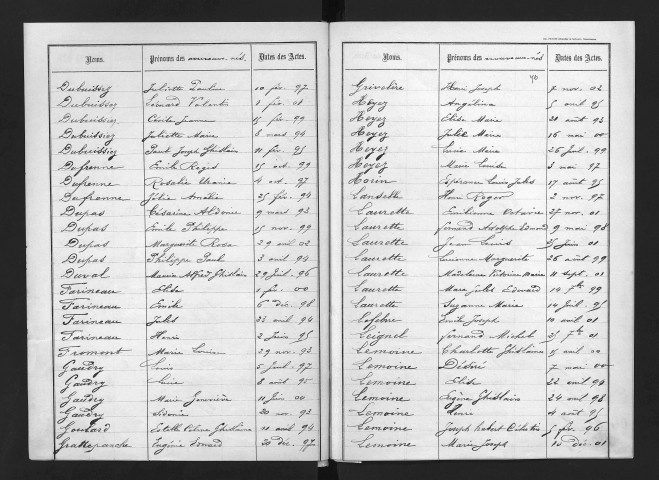 Noms. Prénoms des nouveaux-nés. Dates des Actes.
Dubuissez Juliette Pauline 10 fév. 97
Dubuissez Léonard Valentin 1 fév. 01
Dubuissez Cécile Jeanne 15 fév. 99
Dubuissez Juliette Marie 8 mars 94
Dubuissez Paul Joseph Ghislain 11 fév. 95
Dufrenne Emile Régis 15 oct. 99
Dufrenne Rosalie Maria 4 oct. 97
Dufrenne Zélie Amélie 25 fév. 94
Dupas Césarine Aldonie 9 mars 93
Dupas Emile Philippe 15 nov. 99
Dupas Marguerite Rosa 29 avril 02
Dupas Philippe Paul 3 avril 94
Duval Maurice Alfred Ghislain 29 Juil. 96
Farineau Elise 1 fév. 00
Farineau Emile 6 déc. 98
Farineau Jules 22 avril 94
Farineau Henri 2 Juin 95
Fromont Marie Louise 29 nov. 93
Gaudry Louis 5 Juil. 97
Gaudry Lucie 8 août 95
Gaudry Marie Geneviève 11 Juin 00
Gaudry Sidonie 20 nov. 93
Goulard Estelle Ghislaine 11 avril 94
Grattepanche Eugénie Léonard 20 Déc. 97
Noms. Prénoms des nouveaux-nés Dates des Actes.
Grivelère Henri Joseph 7 nov. 02
Hoyez Angélina 5 avril 95
Hoyez Elise Marie 20 août 93
Hoyez Julie Marie 16 mai 00
Hoyez Lucie Marie 26 Juil. 99
Hoyez Marie Louise 3 mai 97
Houin Espérance Louis Jules 17 août 95
Lansette Henri Roger 2 nov. 97
Laurette Emilienne Octavie 27 nov. 01
Laurette Fernand Adolphe Edmond 9 mai 98
Laurette Jean Louis 25 Juin 01
Laurette Lucienne Marguerite 26 août 99
Laurette Madeleine Victorine Marie 11 sept. 01
Laurette Marc Jules Edouard 14 7bre 99
Laurette Suzanne Marie 14 Juil. 95
Lefebre Emile Joseph 10 avril 01
Leignel Fernand Michel 25 7bre 01
Lemoine Charlotte Ghislaine 15 avril 00
Lemoine Désiré 7 mai 00
Lemoine Elise 22 avril 94
Lemoine Eugène Ghislain 24 avril 98
Lemoine Henri 4 août 95
Lemoine Joseph Hubert Célestin 5 fév. 96
Lemoine Marie Joseph 10 déc. 01